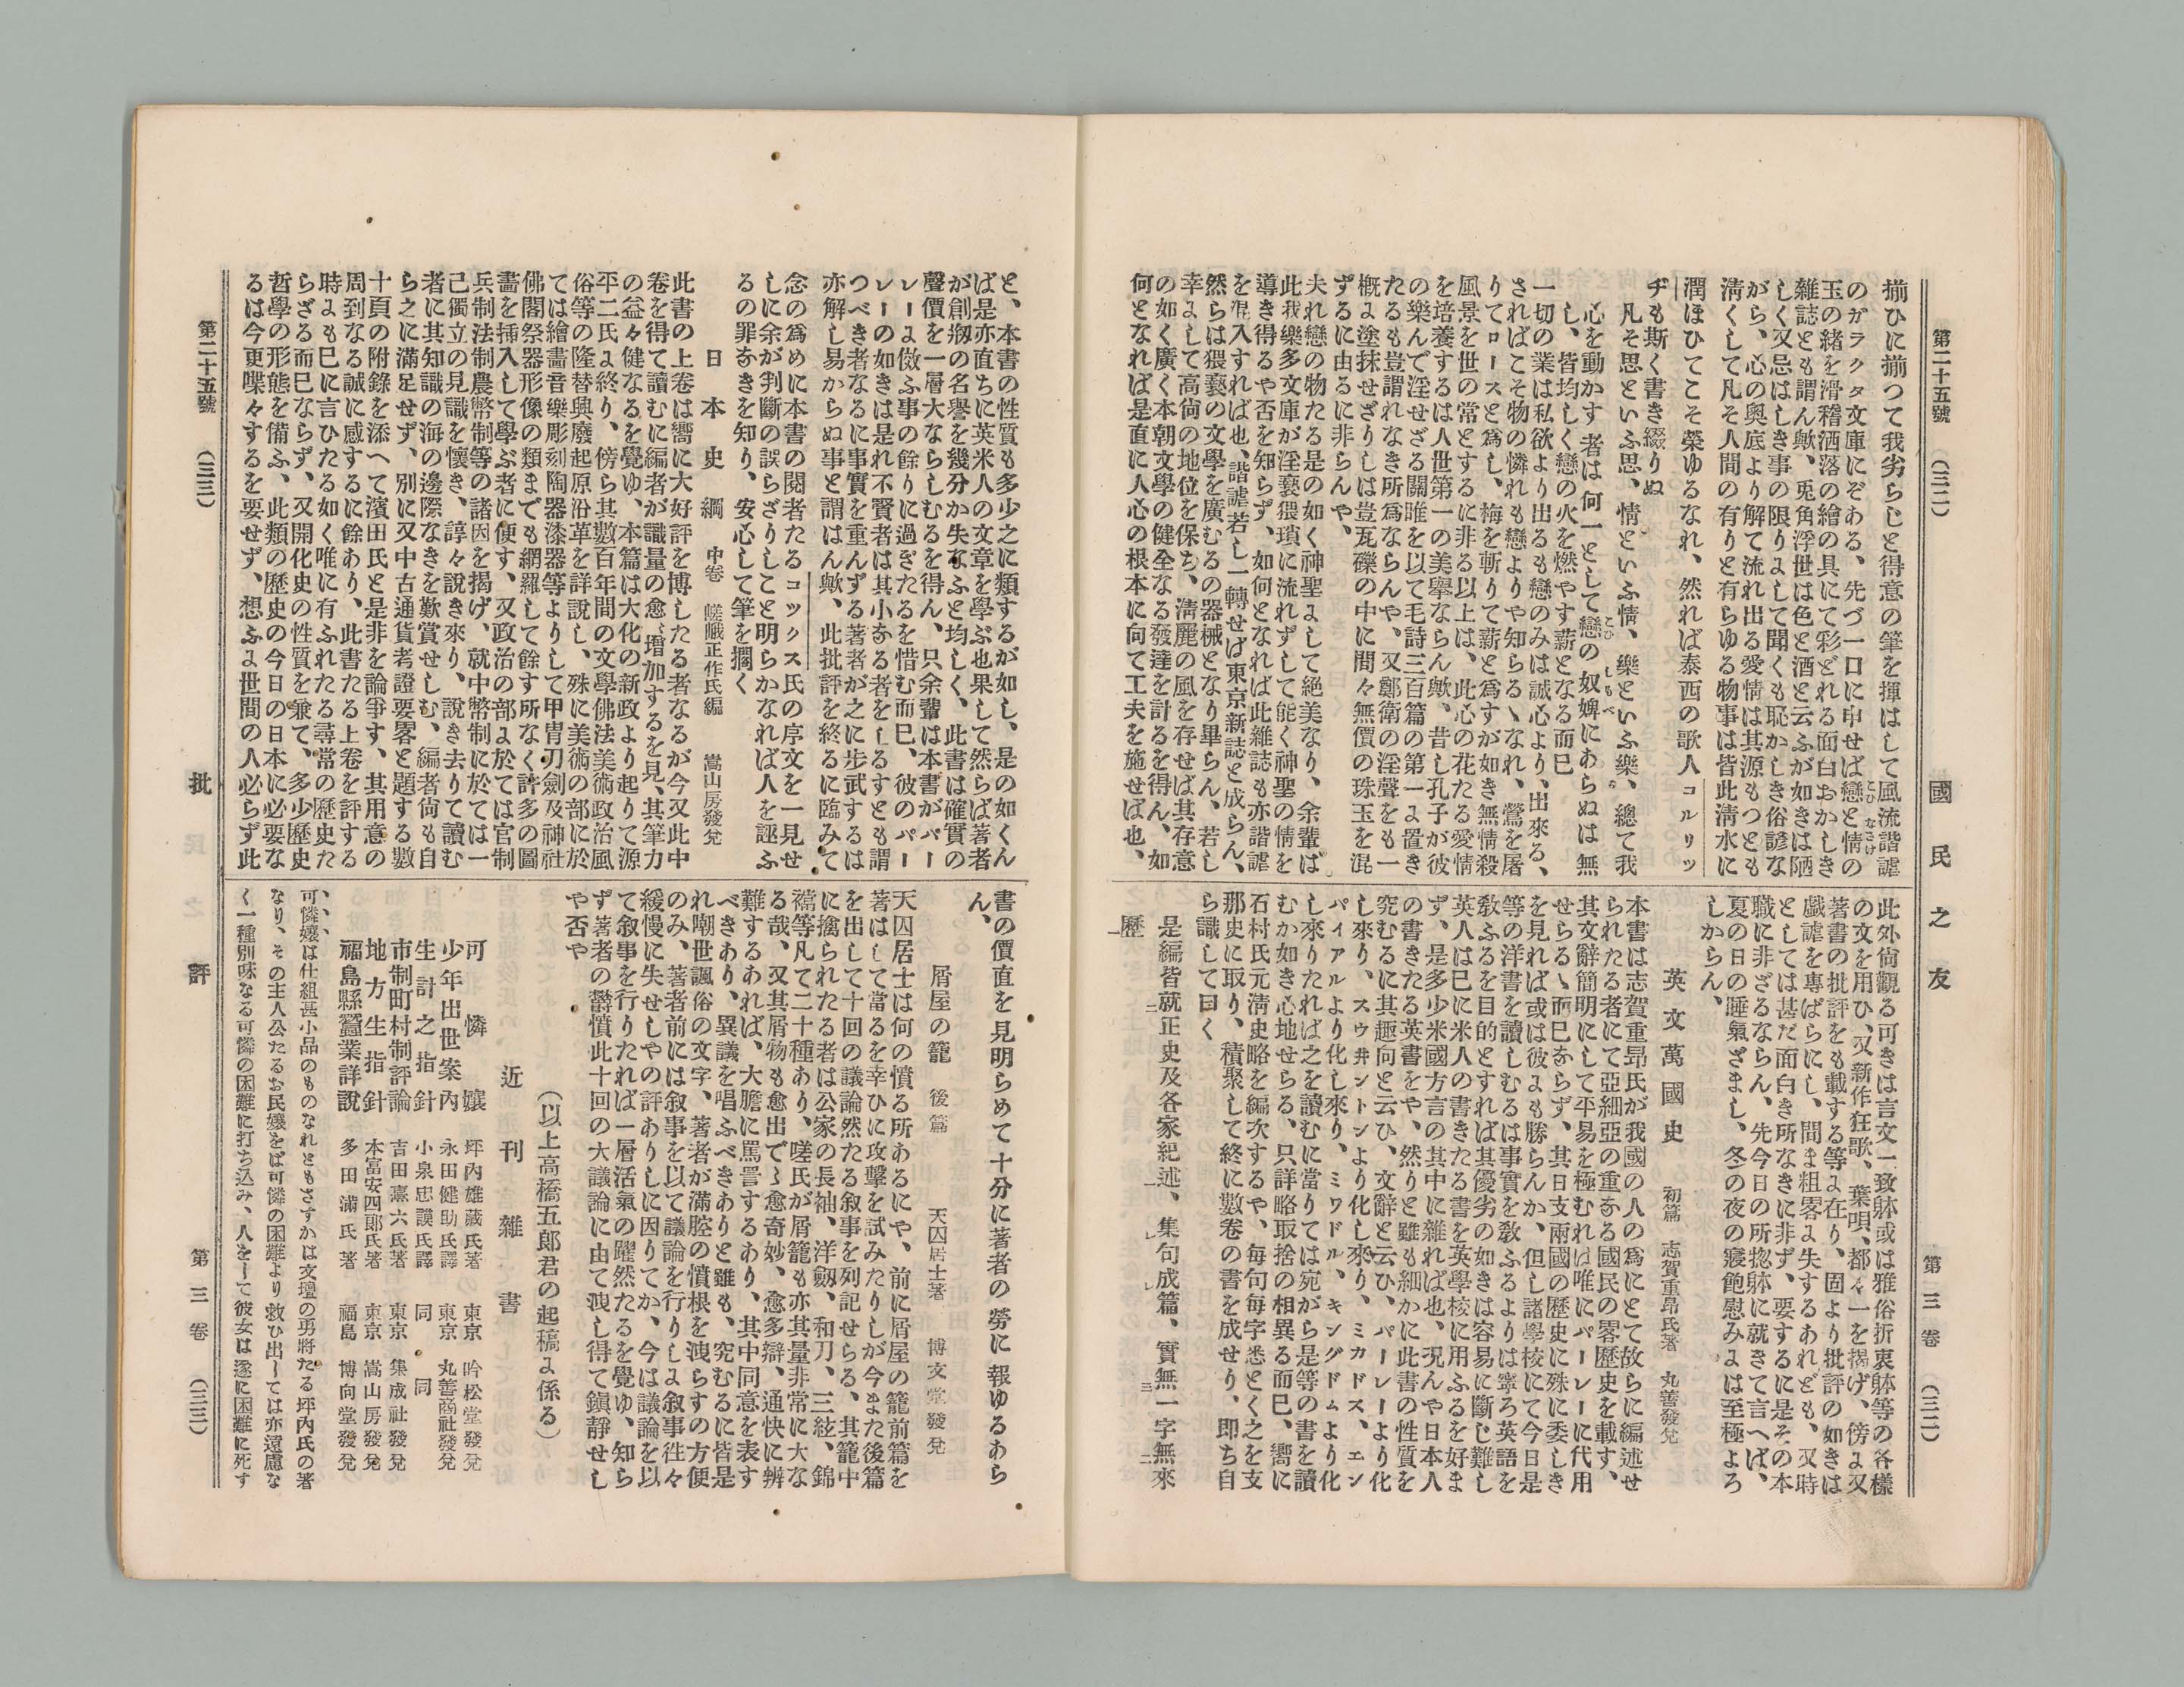 國民之友
第二十五號
(三二)
第三卷
(三二)
揃ひに揃つて我劣らじと得意の筆を揮はして風流諧謔
のガラクタ文庫にぞある、先づ一口に申せば戀と情の
玉の緒を滑稽洒落の繪の具にて彩どれる面白おかしき
雜誌とも謂ん歟、兎角浮世は色と酒と云ふが如きは陋
しく又忌はしき事の限りよして聞くも恥かしき俗諺な
がら、心の奧底より解て流れ出る愛情は其源もつとも
淸くして凡そ人間の有りと有らゆる物事は皆此淸水に
潤ほひてこそ榮ゆるなれ、然れば泰西の歌人コルリッ
ヂも斯く書き綴りぬ
凡そ思といふ思、情といふ情、樂といふ樂、總て我
心を動かす者は何一として戀の奴婢にあらぬは無
し、皆均しく戀の火を燃やす薪となる而已
一切の業は私欲より出るも戀のみは誠心より、出來る、
さればこそ物の憐れも戀よりや知らるヽなれ、鶯を屠
りてロースと爲し、梅を斬りて薪と爲すが如き無情殺
風景を世の常とするに非る以上は、此心の花たる愛情
を培養するは人世第一の美擧ならん歟、昔し孔子が彼
の樂んで淫せざる關雎を以て毛詩三百篇の第一よ置き
たるも豈謂れなき所爲ならんや、又鄭衛の淫聲をも一
概よ塗抹せざりしは豈瓦礫の中に間々無價の珠玉を混
ずるに由るに非らんや、
夫れ戀の物たる是の如く神聖よして絶美なり、余輩ば
此我樂多文庫が淫褻猥瑣に流れずして能く神聖の情を
導き得るや否を知らず、如何となれば此雜誌も亦諧謔
を混入すれば也、諧謔若し一轉せば東京新誌と成らん、
然らは猥褻の文學を廣むるの器械となり畢らん、若し
幸よして高尙の地位を保ち、淸麗の風を存せば其存意
の如く廣く本朝文學の健全なる發達を計るを得ん、如
何となれば是直に人心の根本に向て工夫を施せば也、
此外尙觀る可きは言文一致躰或は雅俗折衷躰等の各樣
の文を用ひ、又新作狂歌、葉唄、都々一を揭げ、傍よ又
著書の批評をも載する等よ在り、固より批評の如きは
戲謔を專ばらにし、間ま粗畧よ失するあれども、又時
としては甚だ面白き所なきに非ず、要するに是その本
職に非ざるならん、先今日の所惣躰に就きて言へば、
夏の日の睡氣ざまし、冬の夜の寢飽慰みよは至極よろ
しからん、
英文萬國史 初篇 志賀重昻氏著 丸善發兌
本書は志賀重昻氏が我國の人の爲にとて故らに編述せ
られたる者にて亞細亞の重なる國民の畧歷史を載す、
其文辭簡明にして平易を極むれば唯にパーレーに代用
せらるヽ而已ならず、其日支兩國の歷史に殊に委しき
を見れば或は彼よも勝らんか、但し諸學校にて今日是
等の洋書を讀しむるは事實を敎ふるよりは寧ろ英語を
敎ふるを目的とすれば其優劣の如きは容易に斷じ難し
英人は已に米人の書きたる書を英學校に用ふるを好ま
ず、是多少米國方言の其中に雜れば也、況んや日本人
の書きたる英書をや、然りと雖も細かに此書の性質を
究むるに其趣向と云ひ、文辭と云ひ、パーレーより化
し來り、スウ井ントンより化し來り、ミカドス、エン
パイアルより化し來り、ミワドル、キングドムより化
し來りたれば之を讀むに當りては宛がら是等の書を讀
むが如き心地せらる、只詳略取捨の相異る而已、嚮に
石村氏元淸史略を編次するや、每句每字悉とく之を支
那史に取り、積聚して終に數卷の書を成せり、即ち自
ら識して曰く
是編皆就正史及各家紀述、集句成篇、實無一字無來
歷
と、本書の性質も多少之に類するが如し、是の如くん
ば是亦直ちに英米人の文章を學ぶ也果して然らば著者
が創剏の名譽を幾分か失なふと均しく、此書は確實の
聲價を一層大ならしむるを得ん、只余輩は本書がパー
レーよ倣ふ事の餘りに過ぎたるを惜む而已、彼のパー
レーの如きは是れ不賢者は其小なる者をしるすとも謂
つべき者なるに事實を重んずる著者が之に步武するは
亦解し易からぬ事と謂はん歟、此批評を終るに臨みて
念の爲めに本書の閱者たるコックス氏の序文を一見せ
しに余が判斷の誤らざりしこと明らかなれば人を誣ふ
るの罪なきを知り、安心して筆を擱く
日本史綱 中卷 嵯峨正作氏編 嵩山房發兌
此書の上卷は嚮に大好評を博したる者なるが今又此中
卷を得て讀むに編者が識量の愈〻增加するを見、其筆力
の益々健なるを覺ゆ、本篇は大化の新政より起りて源
平二氏よ終り、傍ら其數百年間の文學佛法美術政治風
俗等の隆替興廢起原沿革を詳說し、殊に美術の部に於
ては繪畵音樂彫刻陶器漆器等よりして甲冑刀劍及神社
佛閣祭器形像の類までも網羅して餘す所なく許多の圖
畵を揷入して學ぶ者に便す、又政治の部よ於ては官制
兵制法制農幣制等の諸因を揭げ、就中幣制に於ては一
己獨立の見識を懷き、諄々說き來り、說き去りて讀む
者に其知識の海の邊際なきを歎賞せしむ、編者尙も自
ら之に滿足せず、別に又中古通貨考證要畧と題する數
十頁の附錄を添へて濱田氏と是非を論爭す、其用意の
周到なる誠に感ずるに餘あり、此書たる上卷を評する
時よも已に言ひたる如く唯に有ふれたる尋常の歷史た
らざる而已ならず、又開化史の性質を兼て、多少歷史
哲學の形態を備ふ、此類の歷史の今日の日本に必要な
るは今更喋々するを要せず、想ふよ世間の人必らず此
書の價直を見明らめて十分に著者の勞に報ゆるあら
ん、
屑屋の籠 後篇 天囚居士著 博文堂發兌
天囚居士は何の憤る所あるにや、前に屑屋の籠前篇を
著はして當るを幸ひに攻擊を試みたりしが今また後篇
を出して十回の議論然たる敍事を列記せらる、其籠中
に擒られたる者は公家の長袖、洋劔、和刀、三絃、錦
襠等凡て二十種あり、嗟氏が屑籠も亦其量非常に大な
る哉、又其屑物も愈出でゝ愈奇妙、愈多辯、通快に辨
難するあれば、大膽に罵詈するあり、其中同意を表す
べきあり、異議を唱ふべきありと雖も、究むるに皆是
れ嘲世諷俗の文字、著者が滿腔の憤根を洩らすの方便
のみ、著者前には叙事を以て議論を行りしよ叙事徃々
緩慢に失せしやの評ありしに因りてか、今は議論を以
て叙事を行りたれば一層活氣の躍然たるを覺ゆ、知ら
ず著者の欝憤此十回の大議論に由て洩し得て鎭靜せし
や否や
(以上高橋五郎君の起稿よ係る)
近刊雜書
可憐孃 坪內雄藏氏著 東京 吟松堂發兌
少年出世案內 永田健助氏譯 東京 丸善商社發兌
生計之指針 小泉忠謨氏譯 同 同
市制町村制評論 吉田憙六氏著 東京 集成社發兌
地方生指針 本富安四郞氏著 東京 嵩山房發兌
福島縣蠶業詳說 多田滿氏著 福島 博向堂發兌
可憐孃は仕組甚小品のものなれともさすかは文壇の勇將たる坪內氏の著
なり、その主人公たるお民孃をば可憐の困難より救ひ出しては亦還慮な
く一種別味なる可憐の困難に打ち込み、人をして彼女は遂に困難に死す
第二十五號
(三三)
批評
第三卷
(三三)